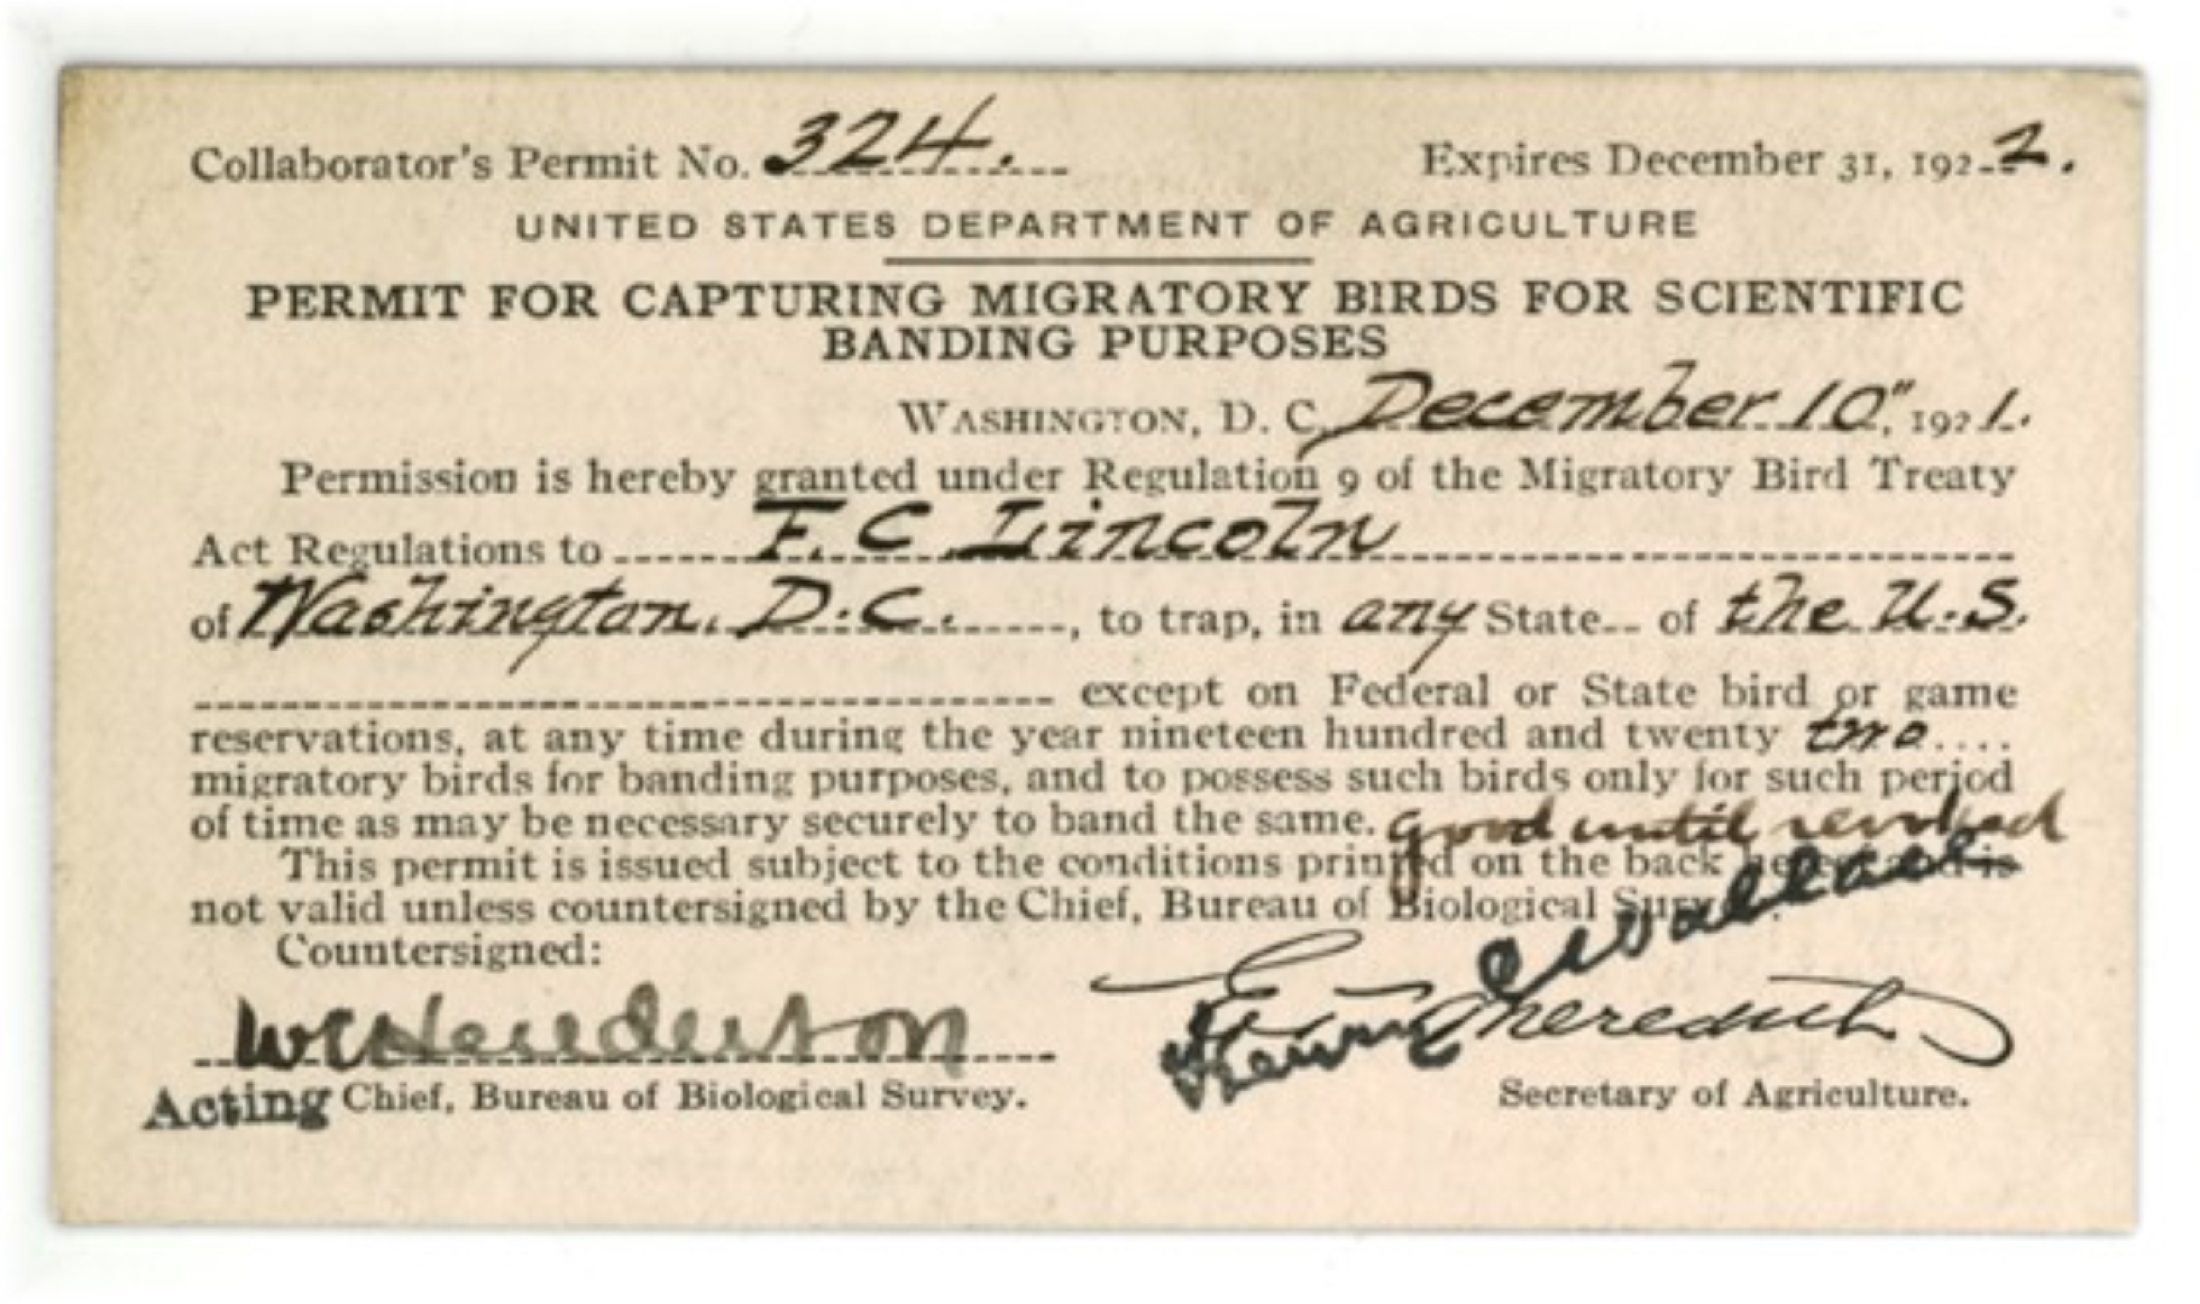 Collaborator's Permit No. 324. Expires December 31, 1922.
UNITED STATES DEPARTMENT OF AGRICULTURE
PERMIT FOR CAPTURING MIGRATORY BIRDS FOR SCIENTIFIC
BANDING PURPOSES
WASHINGTON, D. C., December 10", 1921.
Permission is hereby granted under Regulation 9 of the Migratory Bird Treaty
Act Regulations to F. C. Lincoln
of Washington, D.C., to trap, in any State of the U.S.
except on Federal or State bird or game
reservations, at any time during the year nineteen hundred and twenty two....
migratory birds for banding purposes, and to possess such birds only for such period
of time as may be necessary securely to band the same. good until revoked
This permit is issued subject to the conditions printed on the back hereof and is
not valid unless countersigned by the Chief, Bureau of Biological Survey.
Countersigned:
Henry C Wallace
W C Henderson Meredith
Acting Chief, Bureau of Biological Survey. Secretary of Agriculture.